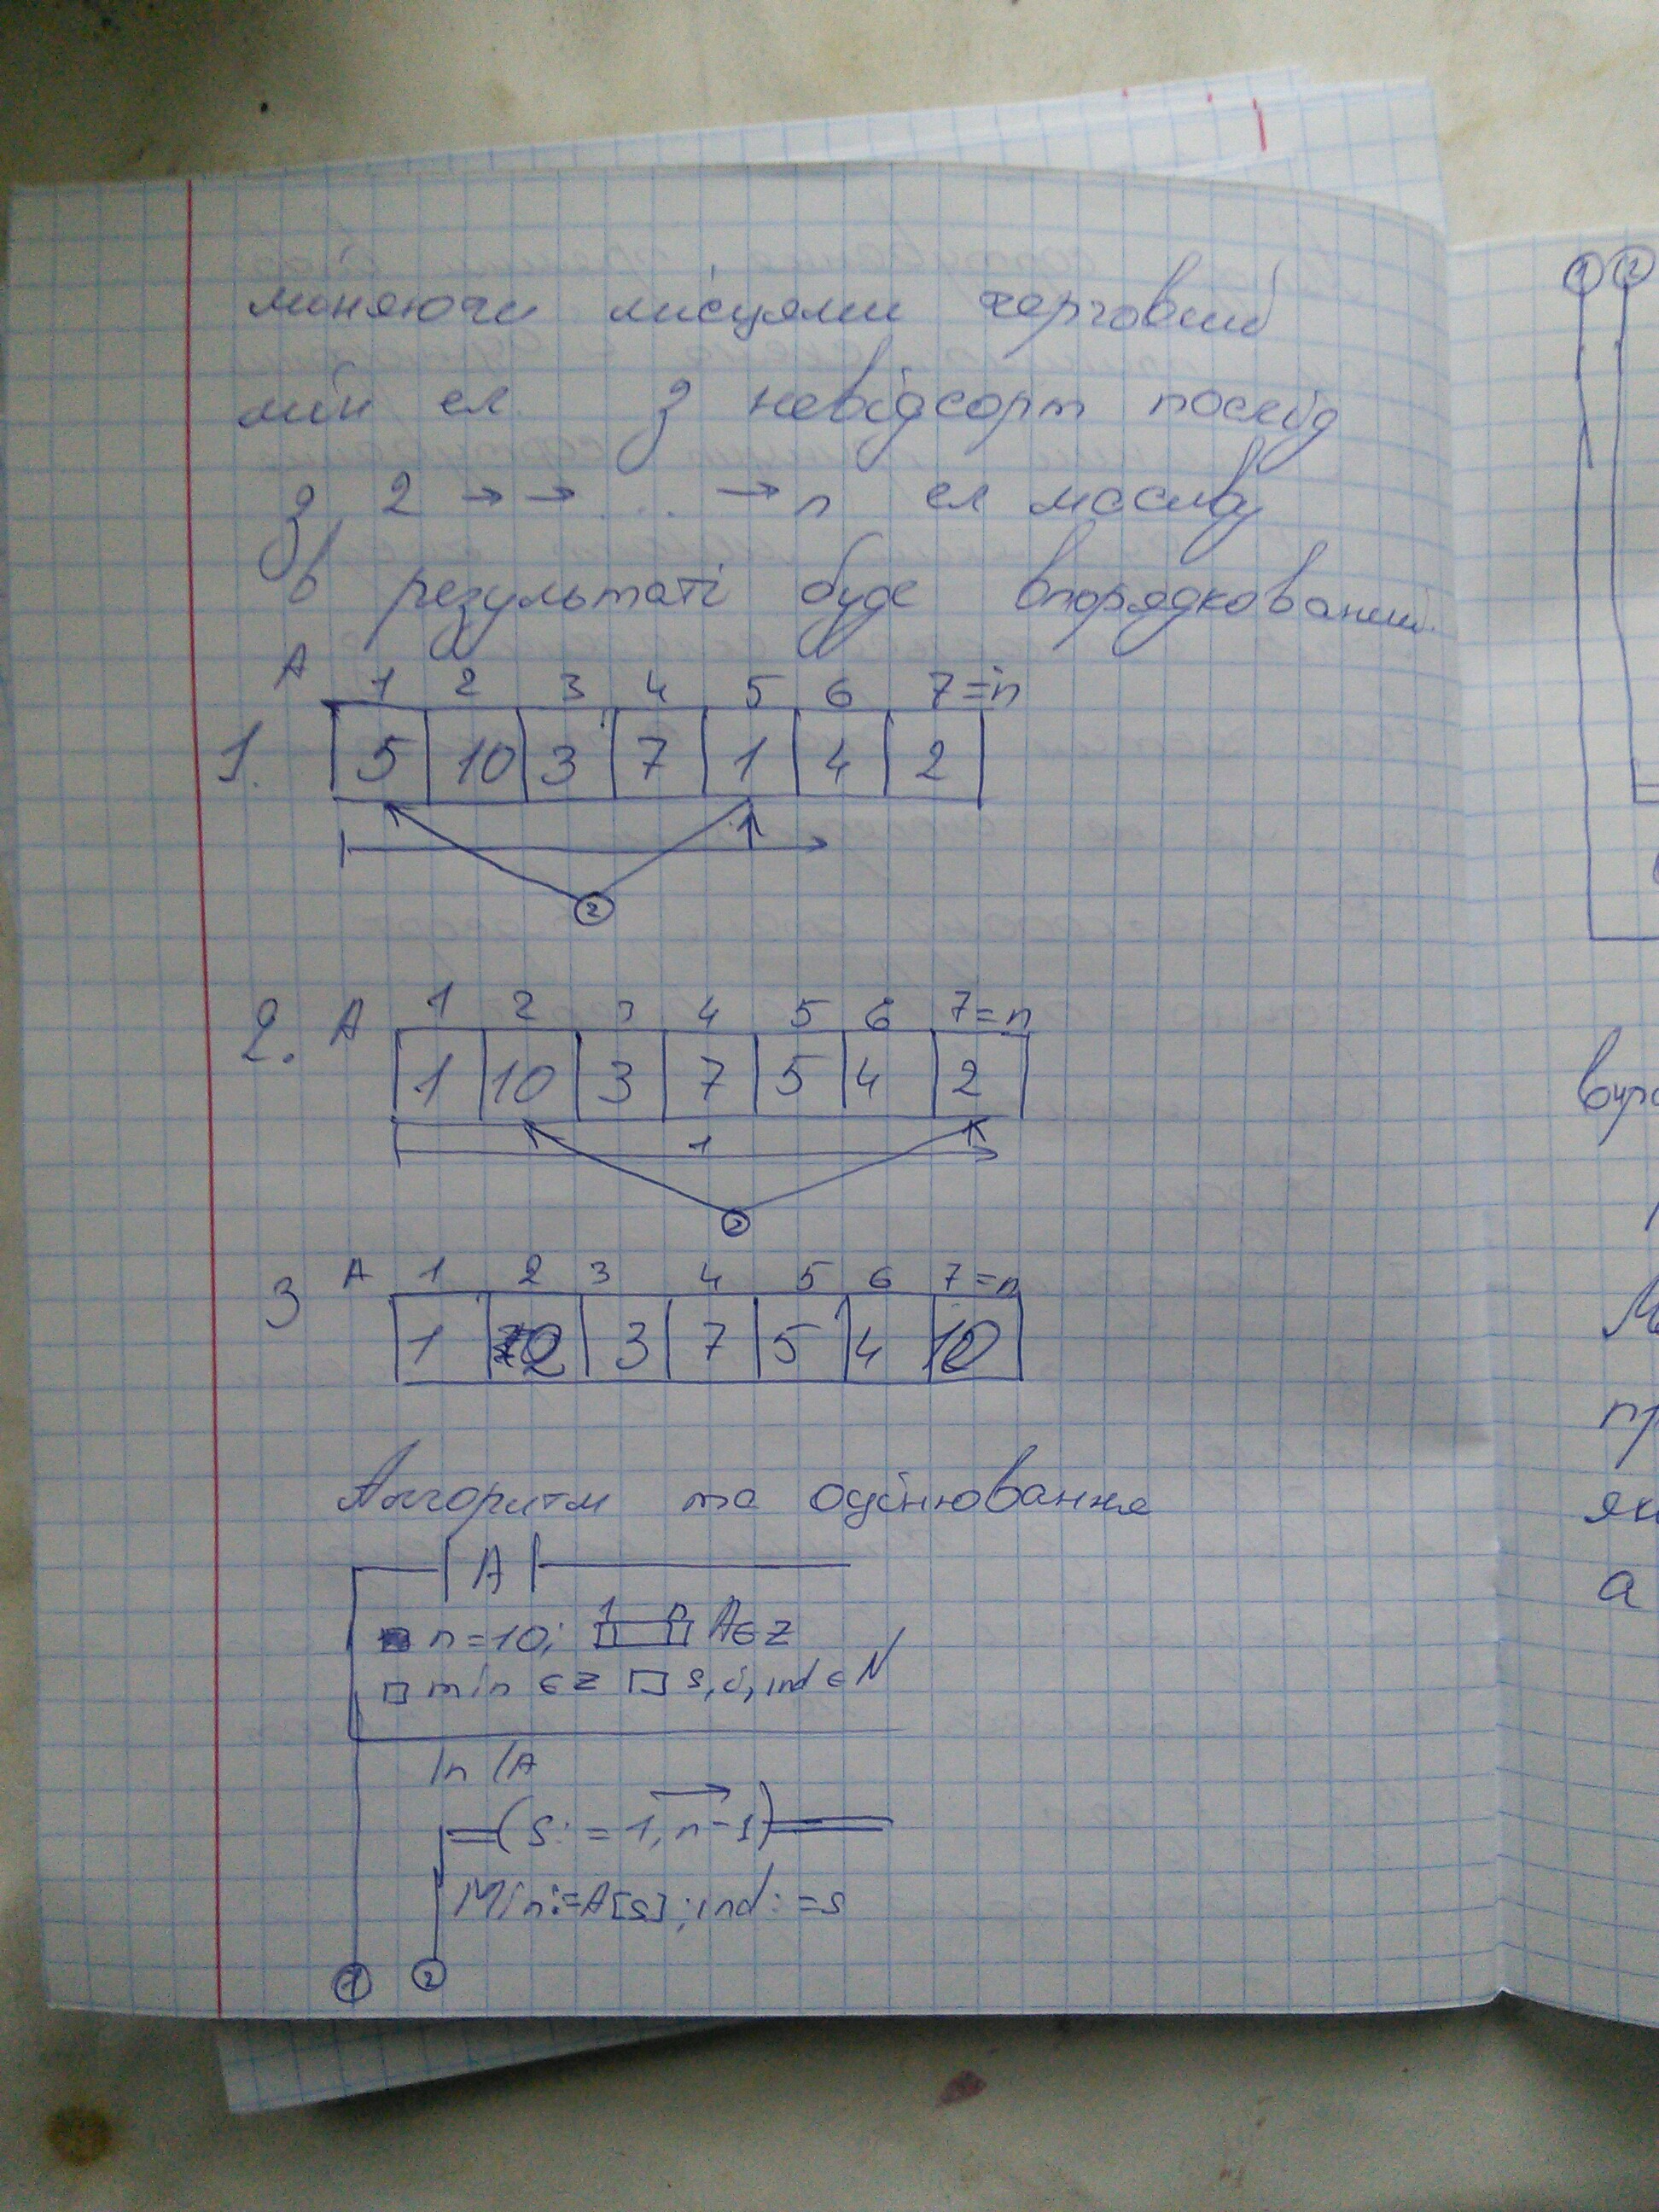 міняючи місцями черговий
мін ел. з невідсорт послід
з 2 → → ... → n ел масиву
в результаті буде впорядкований.
A 1 2 3 4 5 6 7=n
1. 5 10 3 7 1 4 2
1
2
2. A 1 2 3 4 5 6 7=n
1 10 3 7 5 4 2
1
2
3 A 1 2 3 4 5 6 7=n
1 2 3 7 5 4 10
Алгоритм та оцінювання
A
n=10; 1 n A∈Z
min ∈ Z s, i, ind ∈ N
In (A
(s:=1, n-1)
Min:=A[s]; ind:=s
1 2
1 2
пр
а